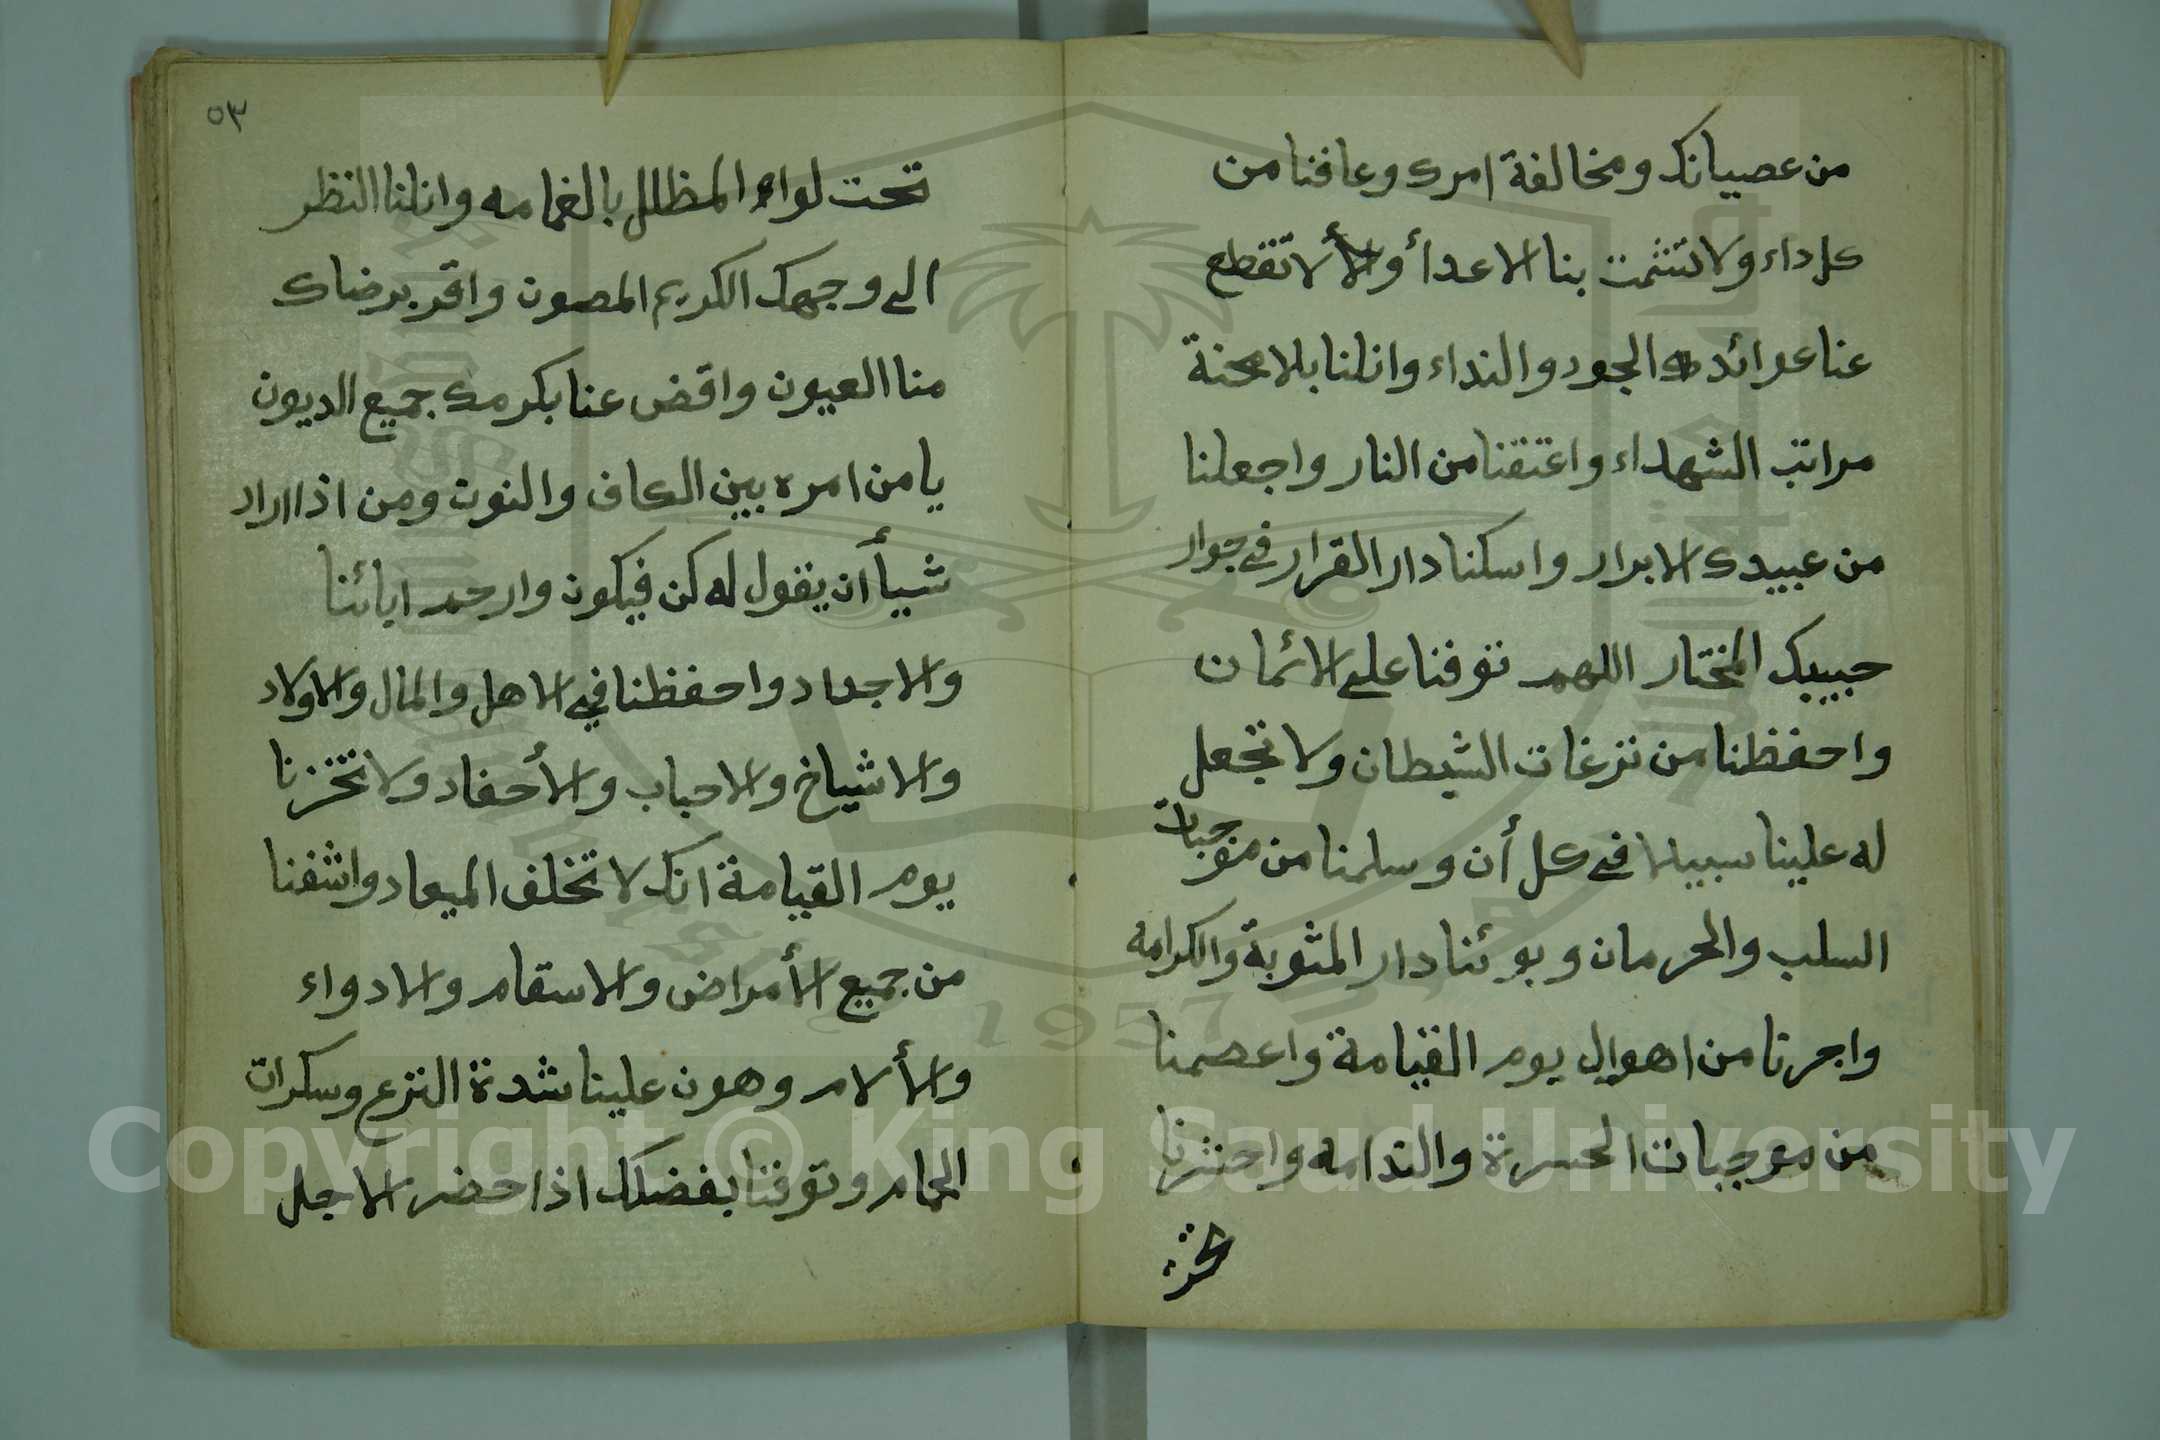 من عصيانك ومخالفة امرك وعافنا من
كل داء ولا تشمت بنا الاعدأ ولا تقطع
عنا عوائد الجود والنداء وانلنا بلا محنة
مراتب الشهداء واعتقنا من النار واجعلنا
من عبيدك الابرار واسكنا دار القرار في جوار
حبيبك المختار اللهم توفنا على الائمان
واحفظنا من نزغات الشيطان ولا تجعل
له علينا سبيلا في كل أن وسلمنا من موجبات
السلب والحرمان وبوئنا دار المثوبة والكرامه
واجرنا من اهوال يوم القيامة واعصمنا
من موجبات الحسرة والندامه واحشرنا
تحت
٥٣
تحت لواء المظلل بالغمامه وانلنا النظر
الى وجهك الكريم المصون واقر برضاك
منا العيون واقض عنا بكرمك جميع الديون
يا من امره بين الكاف والنون ومن اذا اراد
شيأ أن يقول له كن فيكون وارحم ابائنا
والاجداد واحفظنا في الاهل والمال والاولاد
والاشياخ والاحباب والأحفاد ولا تخزنا
يوم القيامة انك لا تخلف الميعاد واشفنا
من جميع الأمراض والاسقام والادواء
والألام وهون علينا شدة النزع وسكرات
الحمام وتوفنا بفضلك اذا حضر الاجل
Copyright © King Saud University
1957